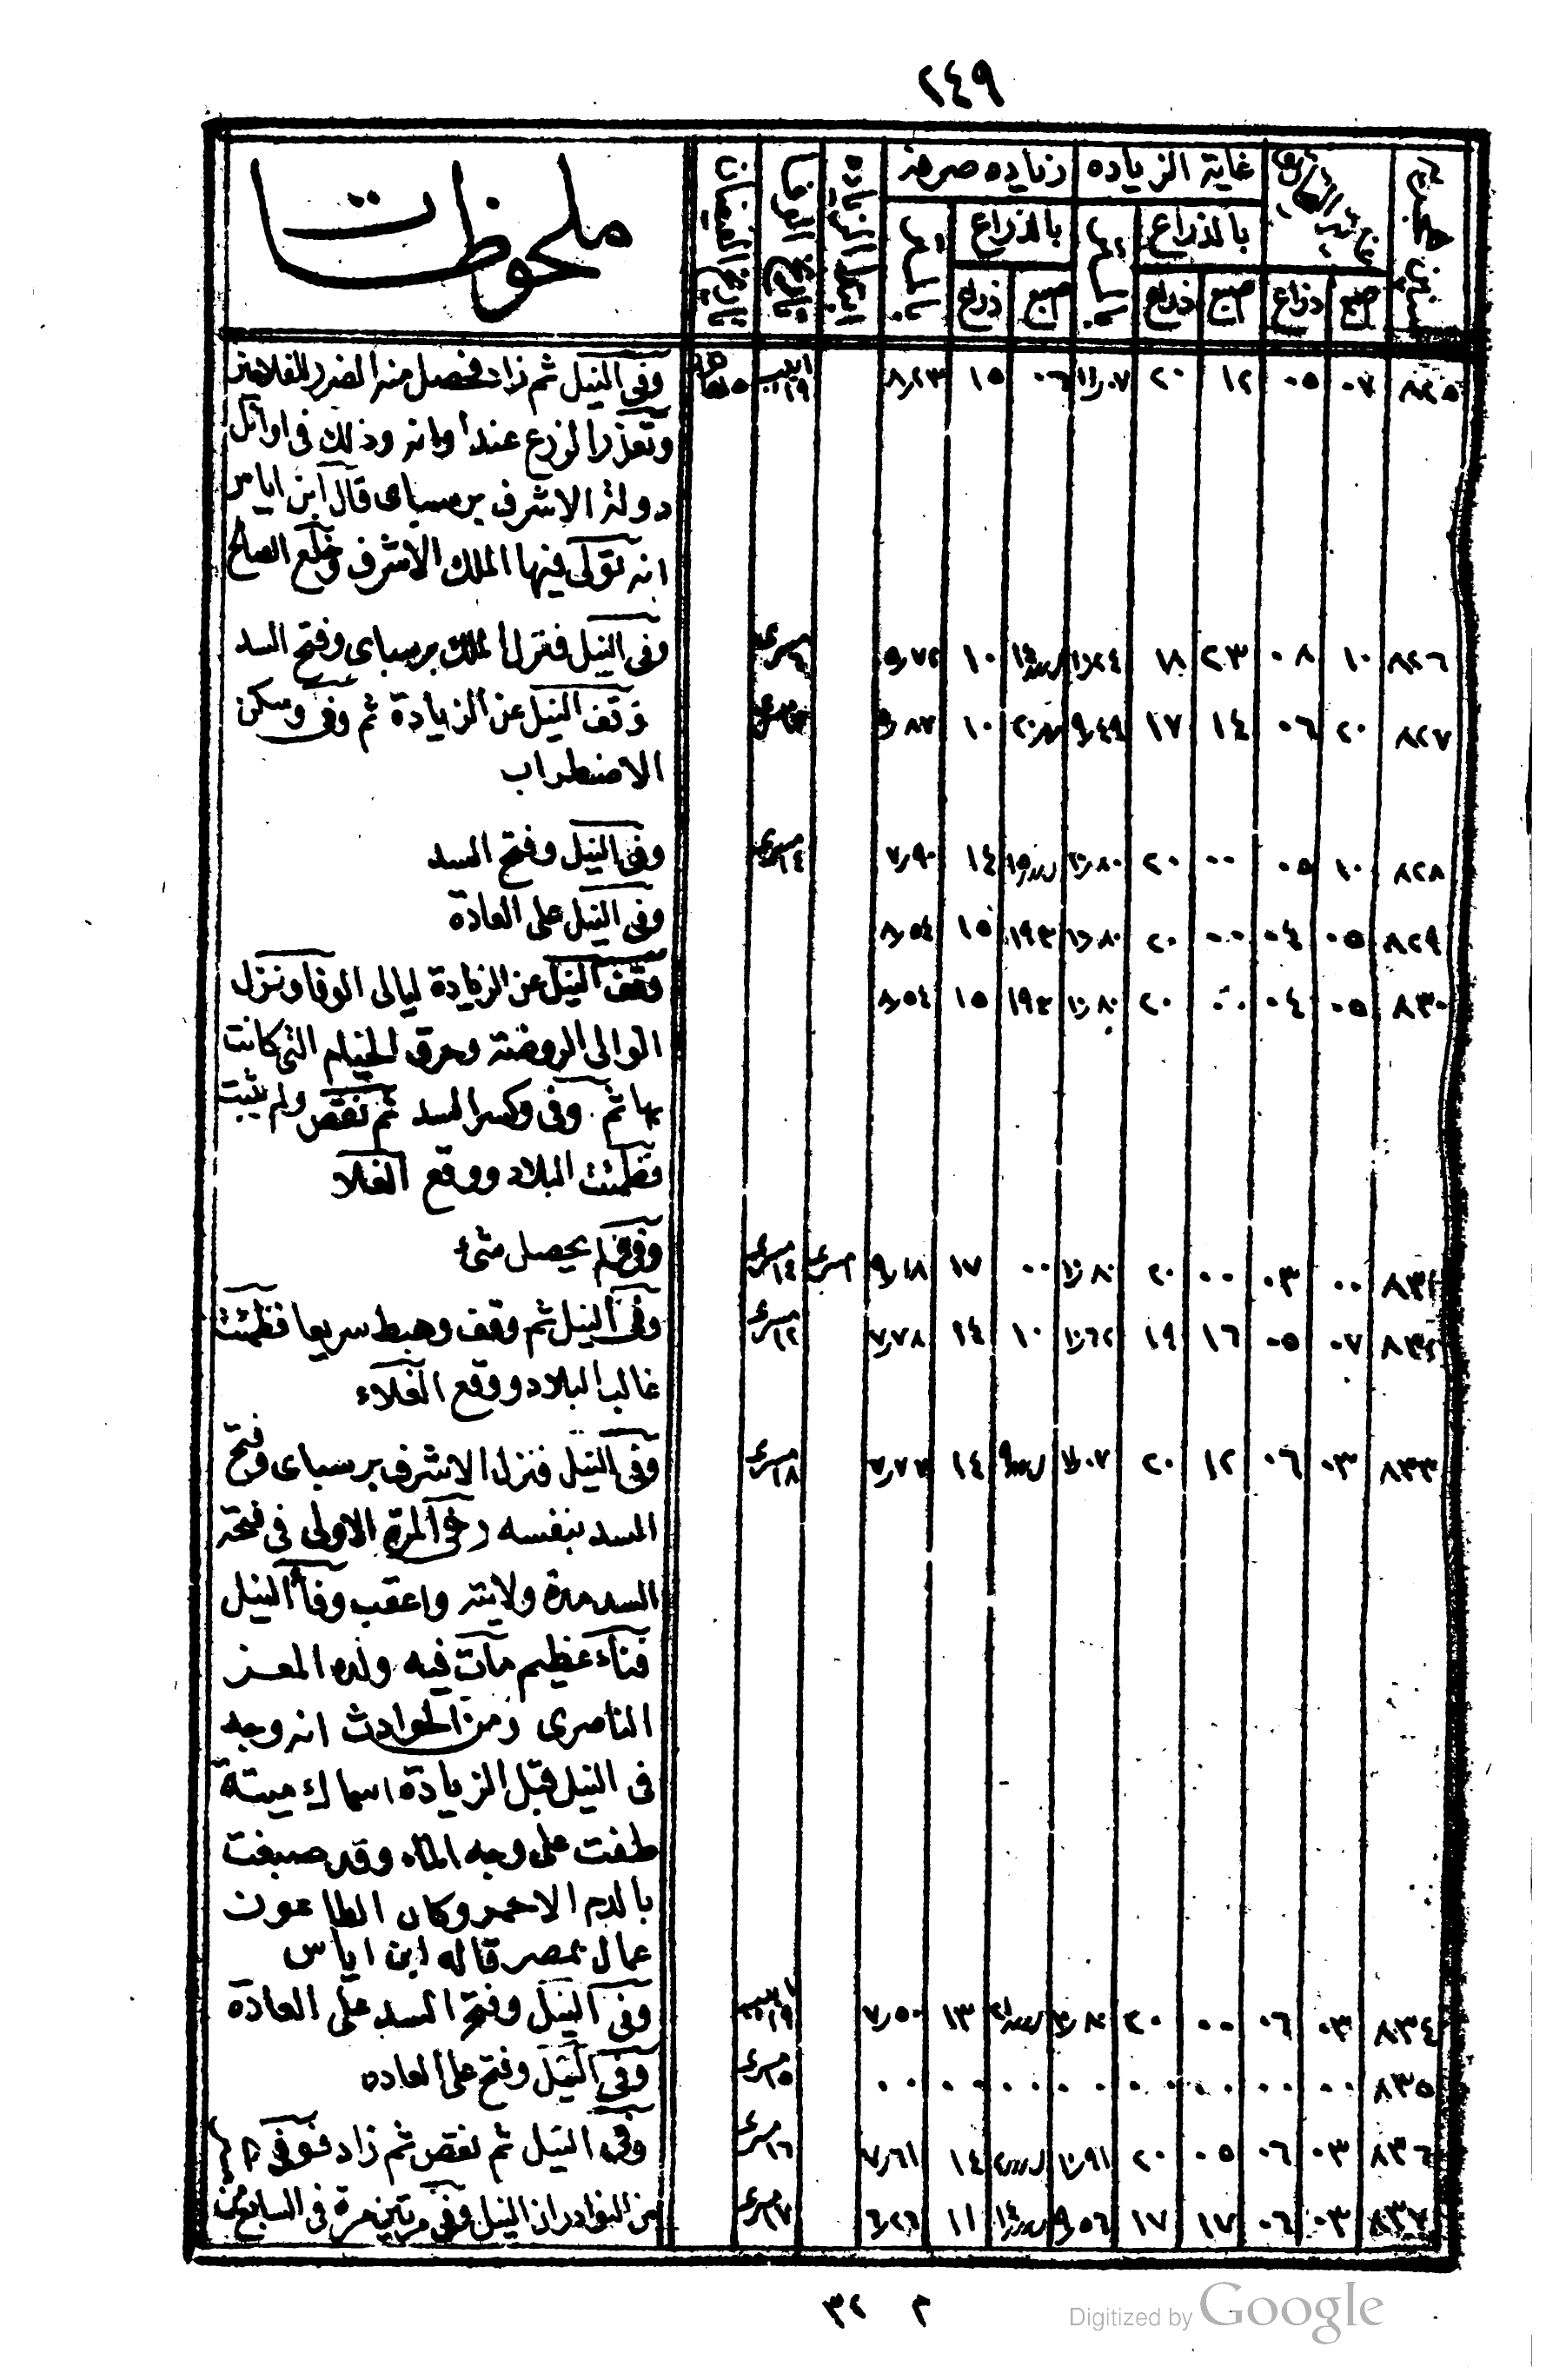 ٢٤٩
سنة هجرية
غاية الزياده
زياده صرفة
ملحوظات
بالذراع
بالذراع
صبع ذراع صبع ذراع صبع ذراع
٨٢٥ ٠٧ ٠٥ ١٢ ٢٠ ١١,٠٧ ٠٦ ١٥ ٨,٢٣ ابيب ٢٩ وفى النيل ثم زاد فحصل منه الضرر للفلاحين
وتعذر الزرع عند أوانه وذلك فى اوائل
دولة الاشرف برسباى قال ابن اياس
انه تولى فيها الملك الاشرف وخلع الصالح
٨٢٦ ١٠ ٠٨ ٢٣ ١٨ ١٠ ٥,٧٢ مسرى وفى النيل فنزل الملك برسباى وفتح السد
٨٢٧ ٢٠ ٠٦ ١٤ ١٧ ٩,٤٩ ١٠ توقف النيل عن الزيادة ثم وفى وسكن
الاضطراب
٨٢٨ ١٠ ٠٥ ٠٠ ٢٠ ١٠,٨٠ ١٤ ٧,٩٠ مسرى وفى النيل وفتح السد
٨٢٩ ٠٥ ٠٤ ٠٠ ٢٠ ١٠,٨٠ ١٩٣ ١٥ ٨,٥٤ وفى النيل على العادة
٨٣٠ ٠٥ ٠٤ ٠٠ ٢٠ ١٠,٨٠ ١٩٣ ١٥ ٨,٥٤ وقف النيل عن الزيادة ليالى الوفا ونزل
الوالى الروضة وحرق الخيام التى كانت
بها ثم وفى وكسر السد ثم نقص ولم يثبت
فظمئت البلاد ووقع الغلا
٨٣١ ٠٠ ٠٣ ٠٠ ٢٠ ١٠,٨٠ ٠٠ ١٧ ٩,١٨ مسرى مسرى ١٤ وفى فلم يحصل شىء
٨٣٢ ٠٧ ٠٥ ١٦ ١٩ ١٠,٦٢ ١٠ ١٤ ٧,٧٨ مسرى ١٢ وفى النيل ثم وقف وهبط سريعا فظمئت
غالب البلاد ووقع الغلاء
٨٣٣ ٠٣ ٠٦ ١٢ ٢٠ ١١,٠٧ ١٤ ٧,٧٧ مسرى ١٨ وفى النيل فنزل الاشرف برسباى وفتح
السد بنفسه وهى المرة الاولى فى فتحه
السد مدة ولايته واعقب وفا النيل
فناء عظيم مات فيه ولده المعز
الناصرى ومن الحوادث انه وجد
فى النيل قبل الزيادة اسماك ميتة
طفت على وجه الماء وقد صبغت
بالدم الاحمر وكان الطاعون
عمال بمصر قاله ابن اياس
٨٣٤ ٠٣ ٠٦ ٠٠ ٢٠ ١٠,٨٠ ١٣ ٧,٥٠ ابيب ٢٩ وفى النيل وفتح السد على العادة
٨٣٥ ٠٠ ٠٠ ٠٠ ٠٠ ٠٠ ٠٠ ٠٠ ٠٠ مسرى ١٥ وفى النيل وفتح على العاده
٨٣٦ ٠٣ ٠٦ ٠٥ ٢٠ ١٠,٩١ ١٤ ٧,٦١ مسرى ١٦ وفى النيل ثم نقص ثم زاد فوفى
٨٣٧ ٠٣ ٠٦ ١٧ ١٧ ٩,٥٦ ١١ ٦,٢٦ مسرى ١٧ من النوادر ان النيل وفى مرتين مرة فى السابع من
٣٢ ٢
Digitized by Google